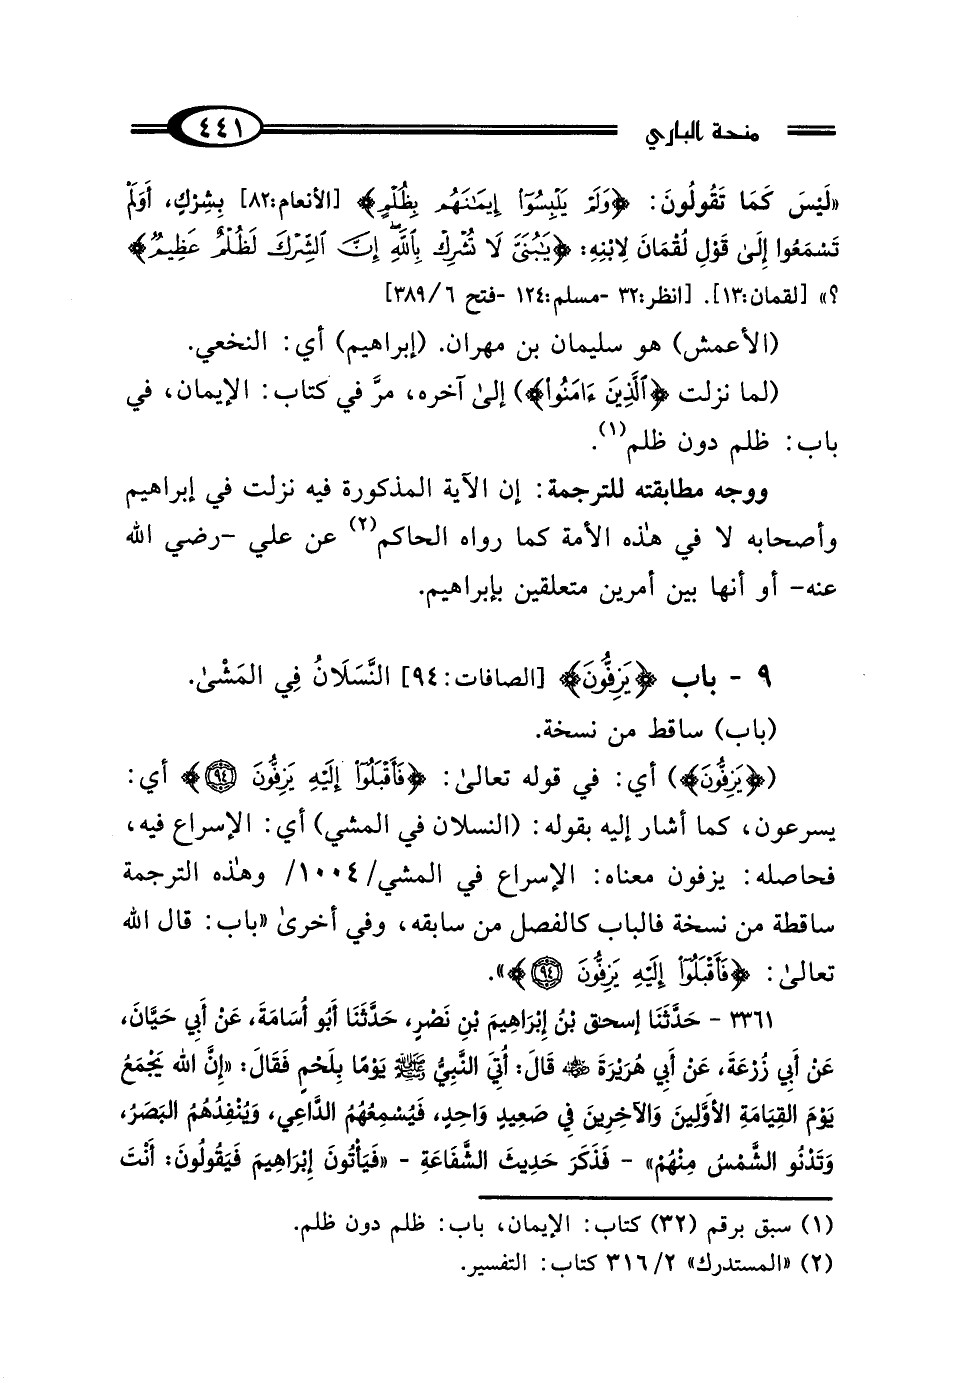 منحة الباري
٤٤١
«لَيْسَ كَمَا تَقُولُونَ: ﴿وَلَمْ يَلْبِسُوٓا۟ إِيمَٰنَهُم بِظُلْمٍ﴾ [الأنعام:٨٢] بِشِرْكٍ، أَوَلَمْ
تَسْمَعُوا إِلَىٰ قَوْلِ لُقْمَانَ لِابْنِهِ: ﴿يَٰبُنَىَّ لَا تُشْرِكْ بِٱللَّهِ ۖ إِنَّ ٱلشِّرْكَ لَظُلْمٌ عَظِيمٌ﴾
؟» [لقمان:١٣]. [انظر:٣٢ -مسلم:١٢٤ -فتح ٦/ ٣٨٩]
(الأعمش) هو سليمان بن مهران. (إبراهيم) أي: النخعي.
(لما نزلت ﴿ٱلَّذِينَ ءَامَنُوا۟﴾) إلىٰ آخره، مرَّ في كتاب: الإيمان، في
باب: ظلم دون ظلم(١).
ووجه مطابقته للترجمة: إن الآية المذكورة فيه نزلت في إبراهيم
وأصحابه لا في هذه الأمة كما رواه الحاكم(٢) عن علي -رضي الله
عنه- أو أنها بين أمرين متعلقين بإبراهيم.
٩ - باب ﴿يَزِفُّونَ﴾ [الصافات: ٩٤] النَّسَلَانُ فِي المَشْىٰ.
(باب) ساقط من نسخة.
(﴿يَزِفُّونَ﴾) أي: في قوله تعالىٰ: ﴿فَأَقْبَلُوٓا۟ إِلَيْهِ يَزِفُّونَ ٩٤﴾ أي:
يسرعون، كما أشار إليه بقوله: (النسلان في المشي) أي: الإسراع فيه،
فحاصله: يزفون معناه: الإسراع في المشي/ ١٠٠٤/ وهذه الترجمة
ساقطة من نسخة فالباب كالفصل من سابقه، وفي أخرىٰ «باب: قال الله
تعالىٰ: ﴿فَأَقْبَلُوٓا۟ إِلَيْهِ يَزِفُّونَ ٩٤﴾».
٣٣٦١ - حَدَّثَنَا إسحق بْنُ إِبْرَاهِيمَ بْنِ نَصْرٍ، حَدَّثَنَا أَبُو أُسَامَةَ، عَنْ أَبِي حَيَّانَ،
عَنْ أَبِي زُرْعَةَ، عَنْ أَبِي هُرَيْرَةَ ﵁ قَالَ: أُتِيَ النَّبِيُّ ﷺ يَوْمًا بِلَحْمٍ فَقَالَ: «إِنَّ الله يَجْمَعُ
يَوْمَ القِيَامَةِ الأَوَّلِينَ وَالآخِرِينَ فِي صَعِيدٍ وَاحِدٍ، فَيُسْمِعُهُمُ الدَّاعِي، وَيُنْفِدُهُمُ البَصَرُ،
وَتَدْنُو الشَّمْسُ مِنْهُمْ» - فَذَكَرَ حَدِيثَ الشَّفَاعَةِ - «فَيَأْتُونَ إِبْرَاهِيمَ فَيَقُولُونَ: أَنْتَ
(١) سبق برقم (٣٢) كتاب: الإيمان، باب: ظلم دون ظلم.
(٢) «المستدرك» ٢/ ٣١٦ كتاب: التفسير.